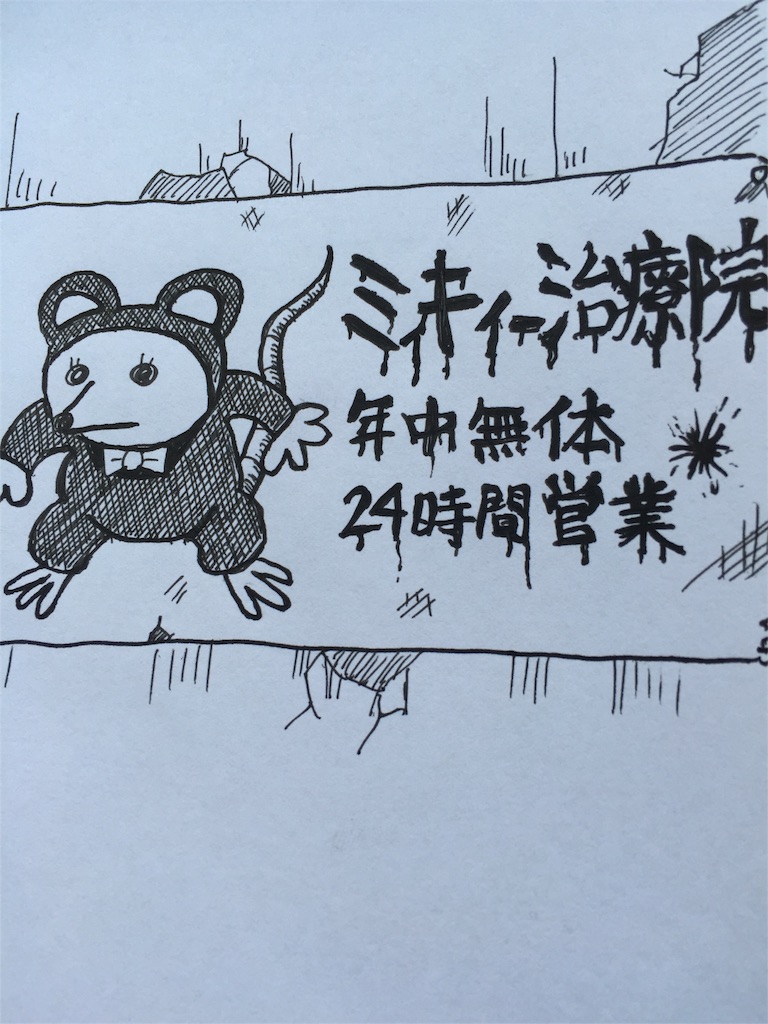 ミキィー治療院
年中無体
24時間営業